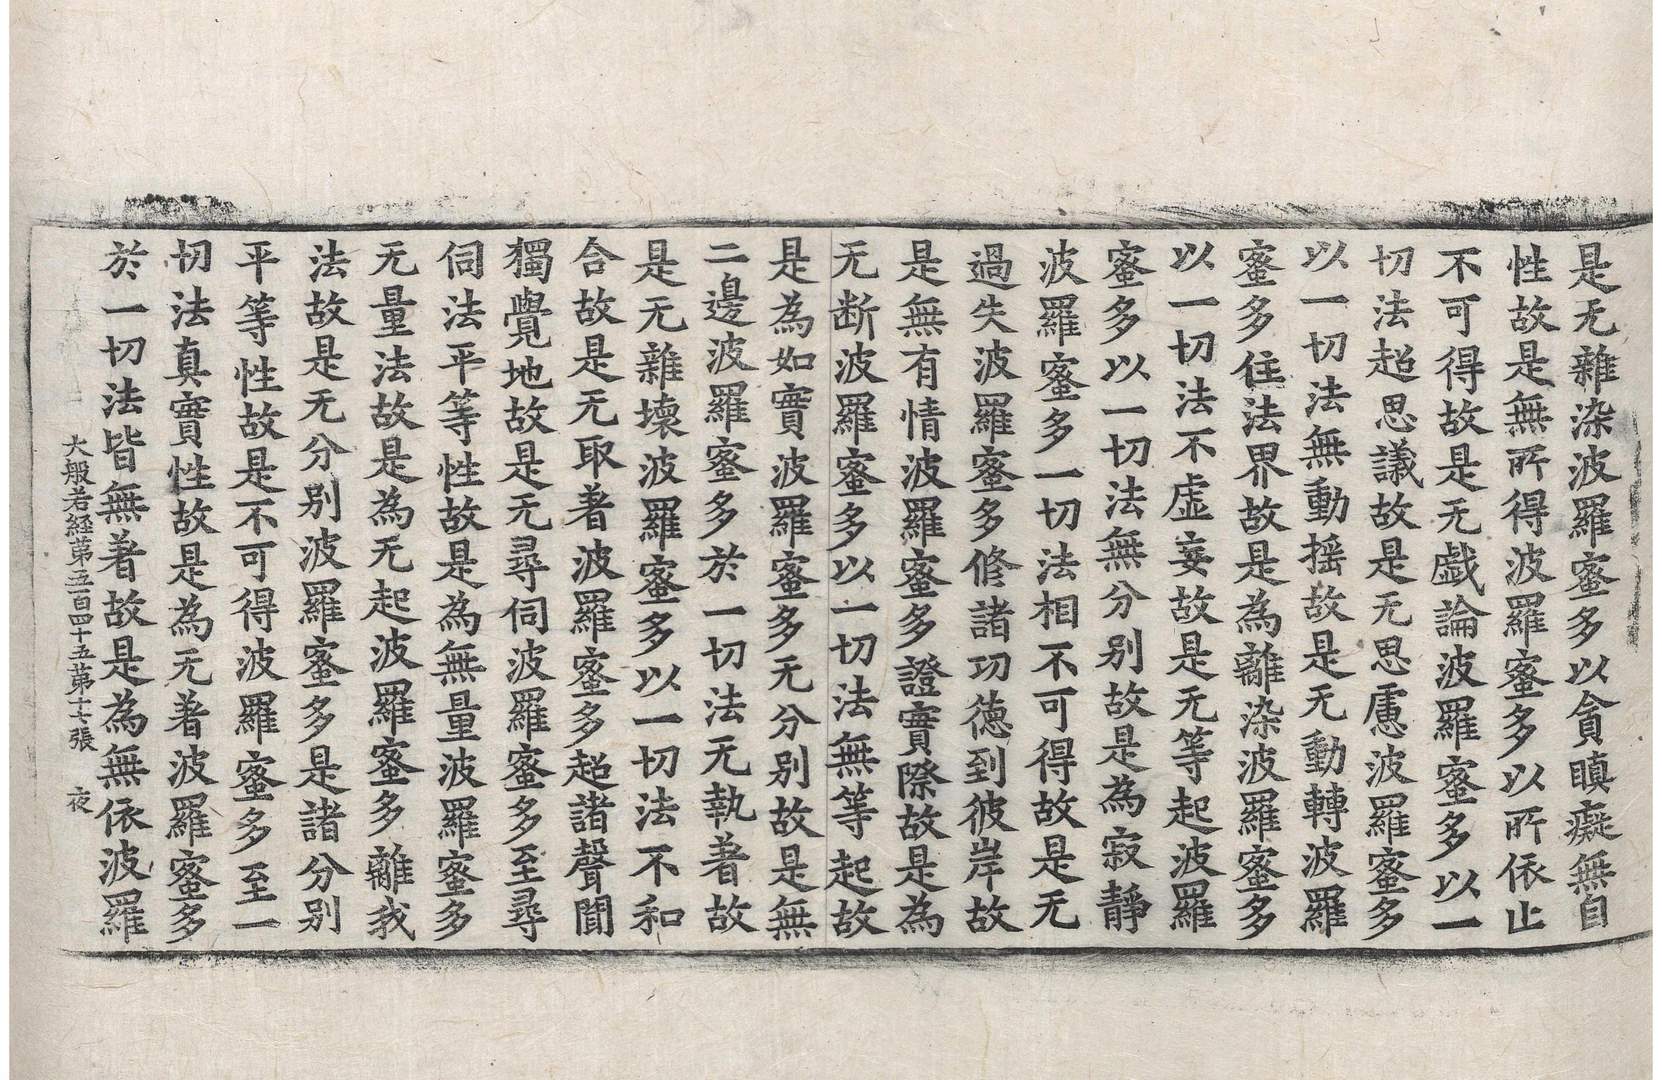 是无雜染波羅蜜多以貪瞋癡無自
性故是無所得波羅蜜多以所依止
不可得故是无戱論波羅蜜多以一
切法超思議故是无思慮波羅蜜多
以一切法無動搖故是无動轉波羅
蜜多住法界故是為離染波羅蜜多
以一切法不虛妄故是无等起波羅
蜜多以一切法無分別故是為寂靜
波羅蜜多一切法相不可得故是无
過失波羅蜜多修諸功德到彼岸故
是無有情波羅蜜多證實際故是為
无断波羅蜜多以一切法無等起故
是為如實波羅蜜多无分別故是無
二邊波羅蜜多於一切法无執著故
是无雜壞波羅蜜多以一切法不和
合故是无取著波羅蜜多超諸聲聞
獨覺地故是无尋伺波羅蜜多至尋
伺法平等性故是為無量波羅蜜多
无量法故是為无起波羅蜜多離我
法故是无分別波羅蜜多是諸分別
平等性故是不可得波羅蜜多至一
切法真實性故是為无著波羅蜜多
於一切法皆無著故是為無依波羅
大般若経苐五百四十五苐十七張 夜